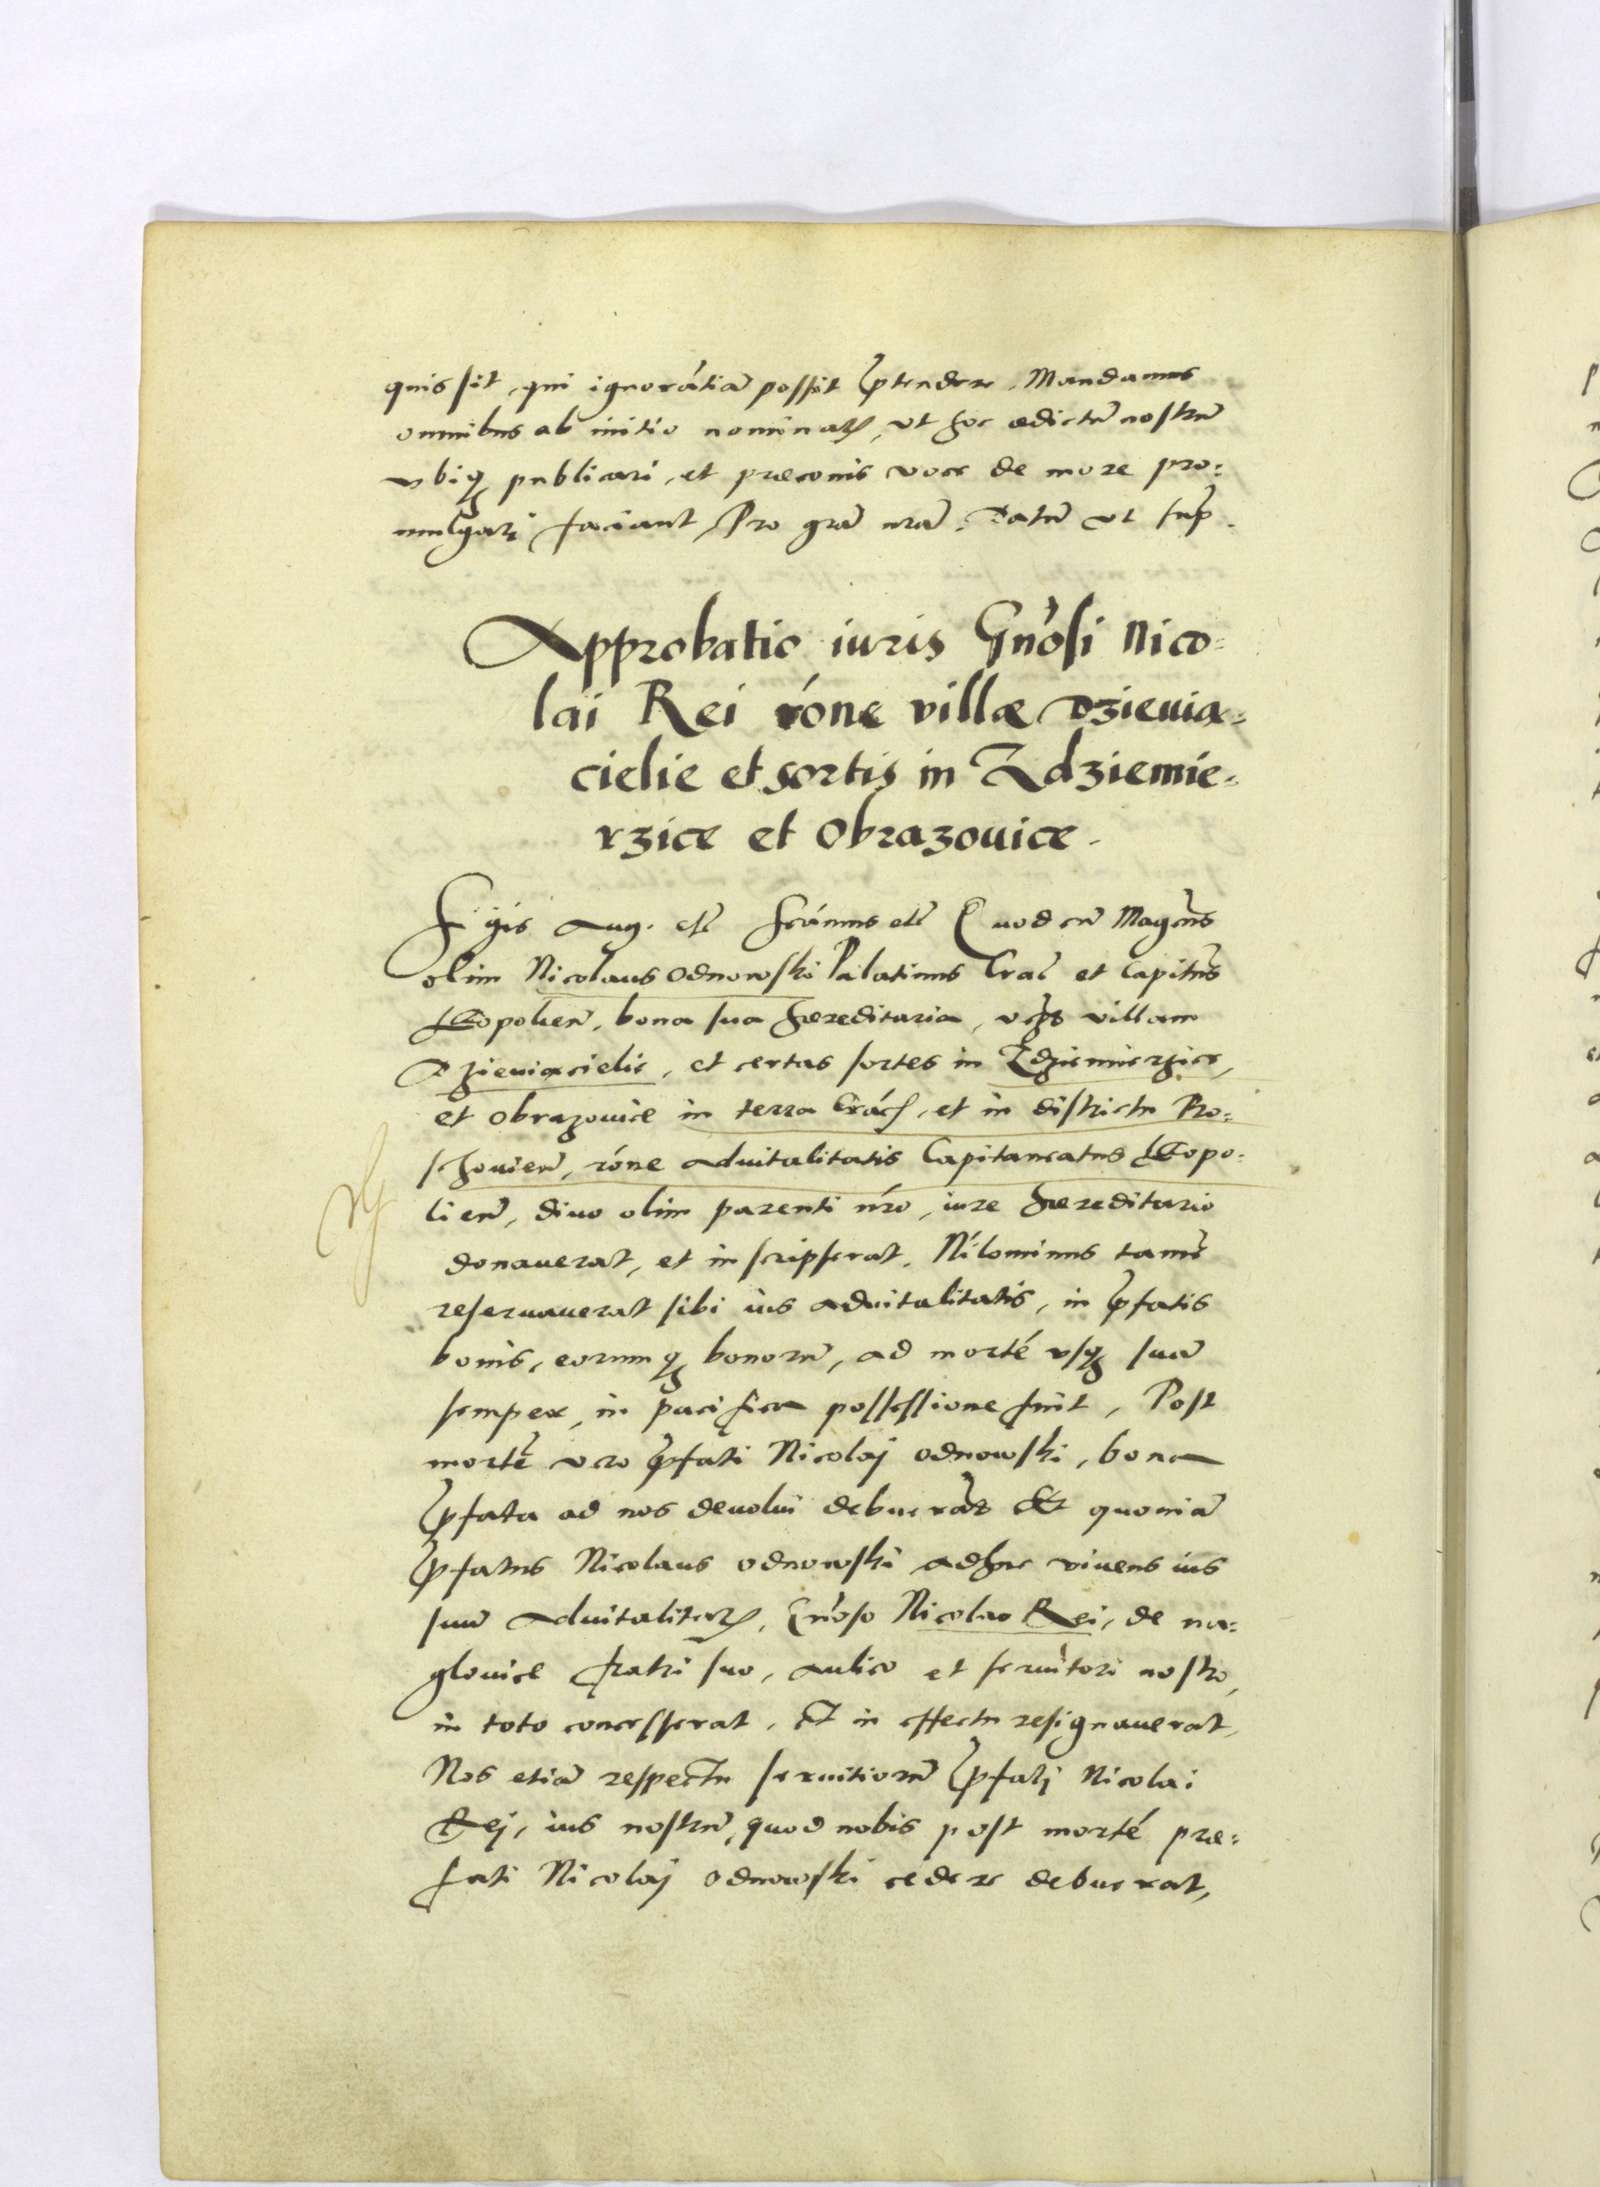 quis sit, qui ignorãtiã possit p̃tendere. Mandamus
omnibus ab initio nominatis, ut hoc ædictũ nostrũ
ubiq; publicari, et præconis voce de more pro:
mulgari faciant, Pro grã nrã. Datũ ut sup̃.
Approbatio iuris Gñosi Nico:
lai Rei rõne villæ Dzieuia:
cielie et sortis in Zdziemie:
rzice et Obrazouice.
S'gis Aug. etc̃ Scimus etc̃ Quod cũ Magcũs
olim Nicolaus Odnowski Palatinus Crac̃ et Capitñs
Leopolieñ, bona sua hæreditaria, vcz villam
Dzieuiacielie, et certas sortes in Zdziemierzice,
et Obrazouice in terra Crac̃, et in districtu Pro:
schouieñ, rõne aduitalitatis Capitaneatus Leopo:
lieñ, diuo olim parenti nr̃o, iure hæreditario
donauerat, et inscripserat. Nilominus tamẽ
reseruauerat sibi ius aduitalitatis, in p̃fatis
bonis, eorumq; bonorũ, ad mortẽ usq; suã
semper, in pacifica possessione fuit, Post
mortẽ vero p̃fati Nicolaj Odnowski, bona
p̃fata ad nos deuolui debuerãt Et quoniã
p̃fatus Nicolaus Odnowski adhuc viuens ius
suũ Aduitalitatis, Gñoso Nicolao Rei, de na:
glouice fratri suo, aulico et seruitori nostro,
in toto concesserat, Et in effectu resignauerat,
Nos etiã respectu seruitiorũ p̃fatj Nicolai
Rej, ius nostrũ, quod nobis post mortẽ præ:
fati Nicolaj Odnowski cedere debuerat,